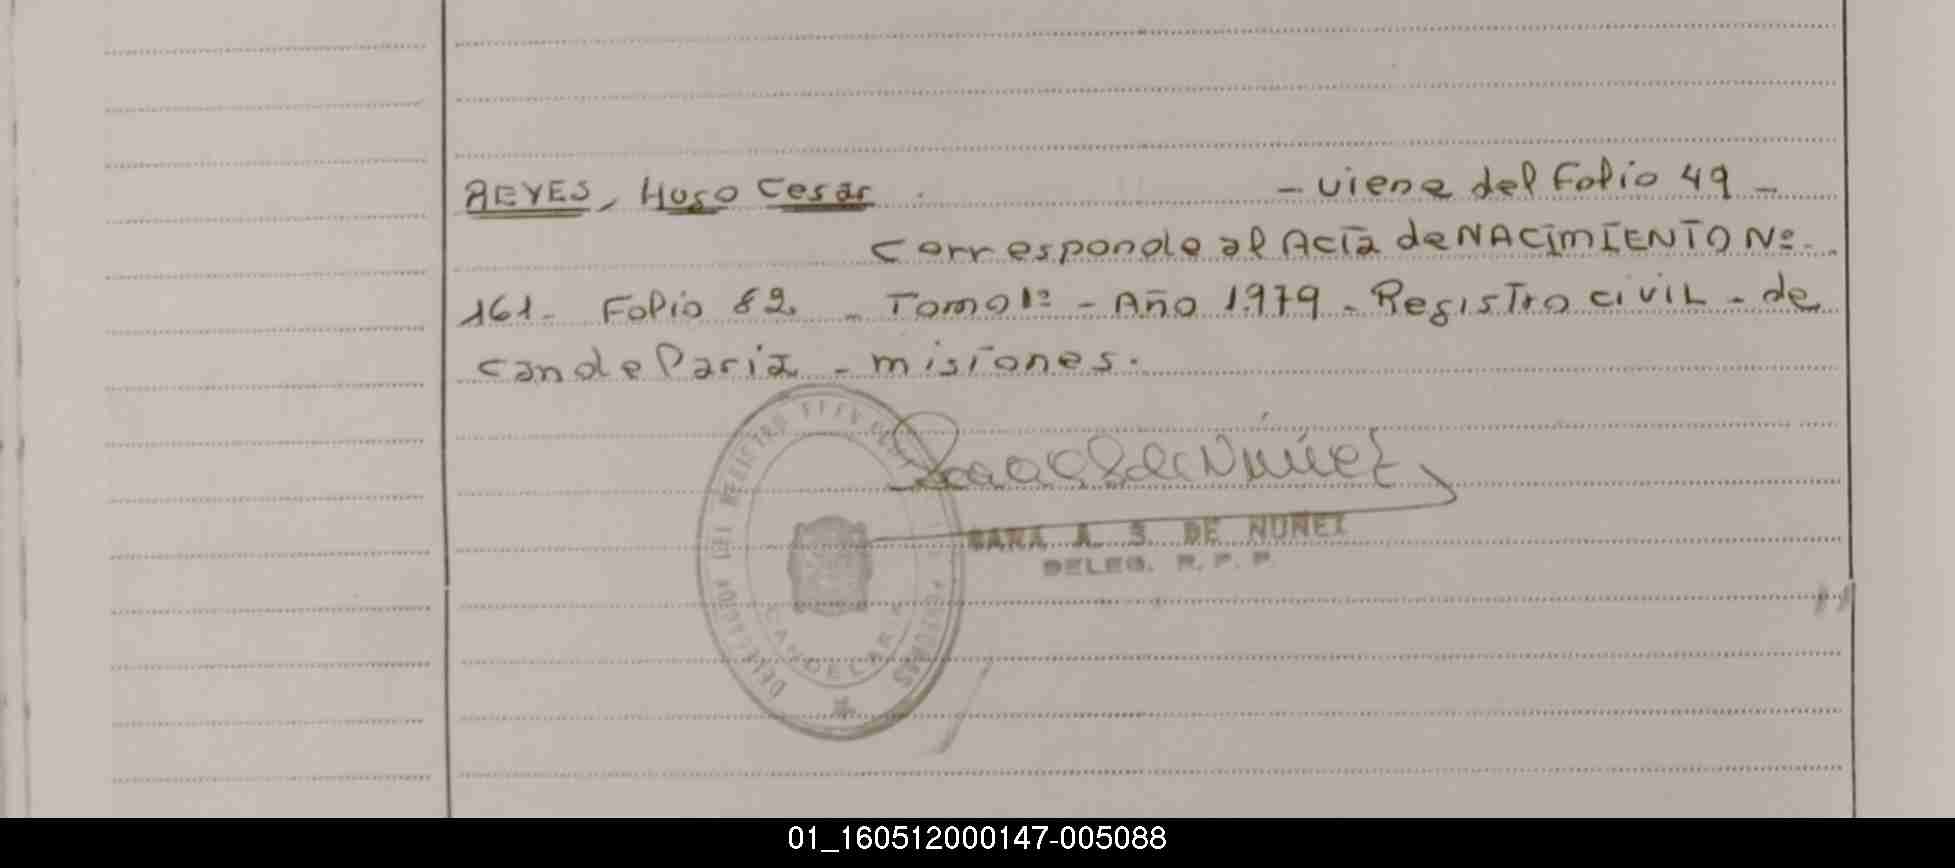 REYES, Hugo Cesar - viene del Folio 49 -
Corresponde al Acta de NACIMIENTO Nº
161 - Folio 82 - Tomo 1º - Año 1979 - Registro civil - de
candelaria - misiones.
SARA A. S. DE NUÑEZ
DELEG. R. P. P.
DELEGACION DEL REGISTRO
CANDELARIA
01_160512000147-005088